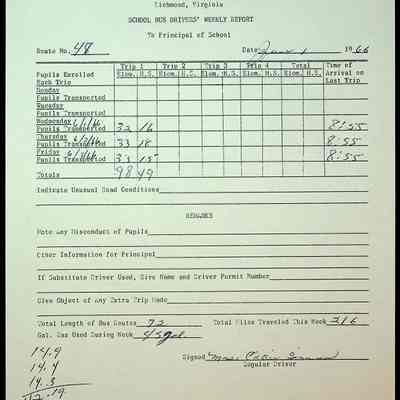 Richmond, Virginia
SCHOOL BUS DRIVERS' WEEKLY REPORT
To Principal of School
Route No. 48 Date June 1 1966
Trip 1 Trip 2 Trip 3 Trip 4 Total Time of
Pupils Enrolled Elem. H.S. Elem. H.S. Elem. H.S. Elem. H.S. Elem. H.S. Arrival on
Each Trip Last Trip
Monday
Pupils Transported
Tuesday
Pupils Transported
Wednesday 6/1/66
Pupils Transported 32 16 8:55
Thursday 6/2/66
Pupils Transported 33 18 8:55
Friday 6/3/66
Pupils Transported 33 15 8:55
Totals 98 49
Indicate Unusual Road Conditions
REMARKS
Note any Misconduct of Pupils
Other Information for Principal
If Substitute Driver Used, Give Name and Driver Permit Number
Give Object of any Extra Trip Made
Total Length of Bus Routes 72 Total Miles Traveled This Week 216
Gal. Gas Used During Week 45 gal.
Signed Mrs.
Regular Driver
14.9
14.4
14.3